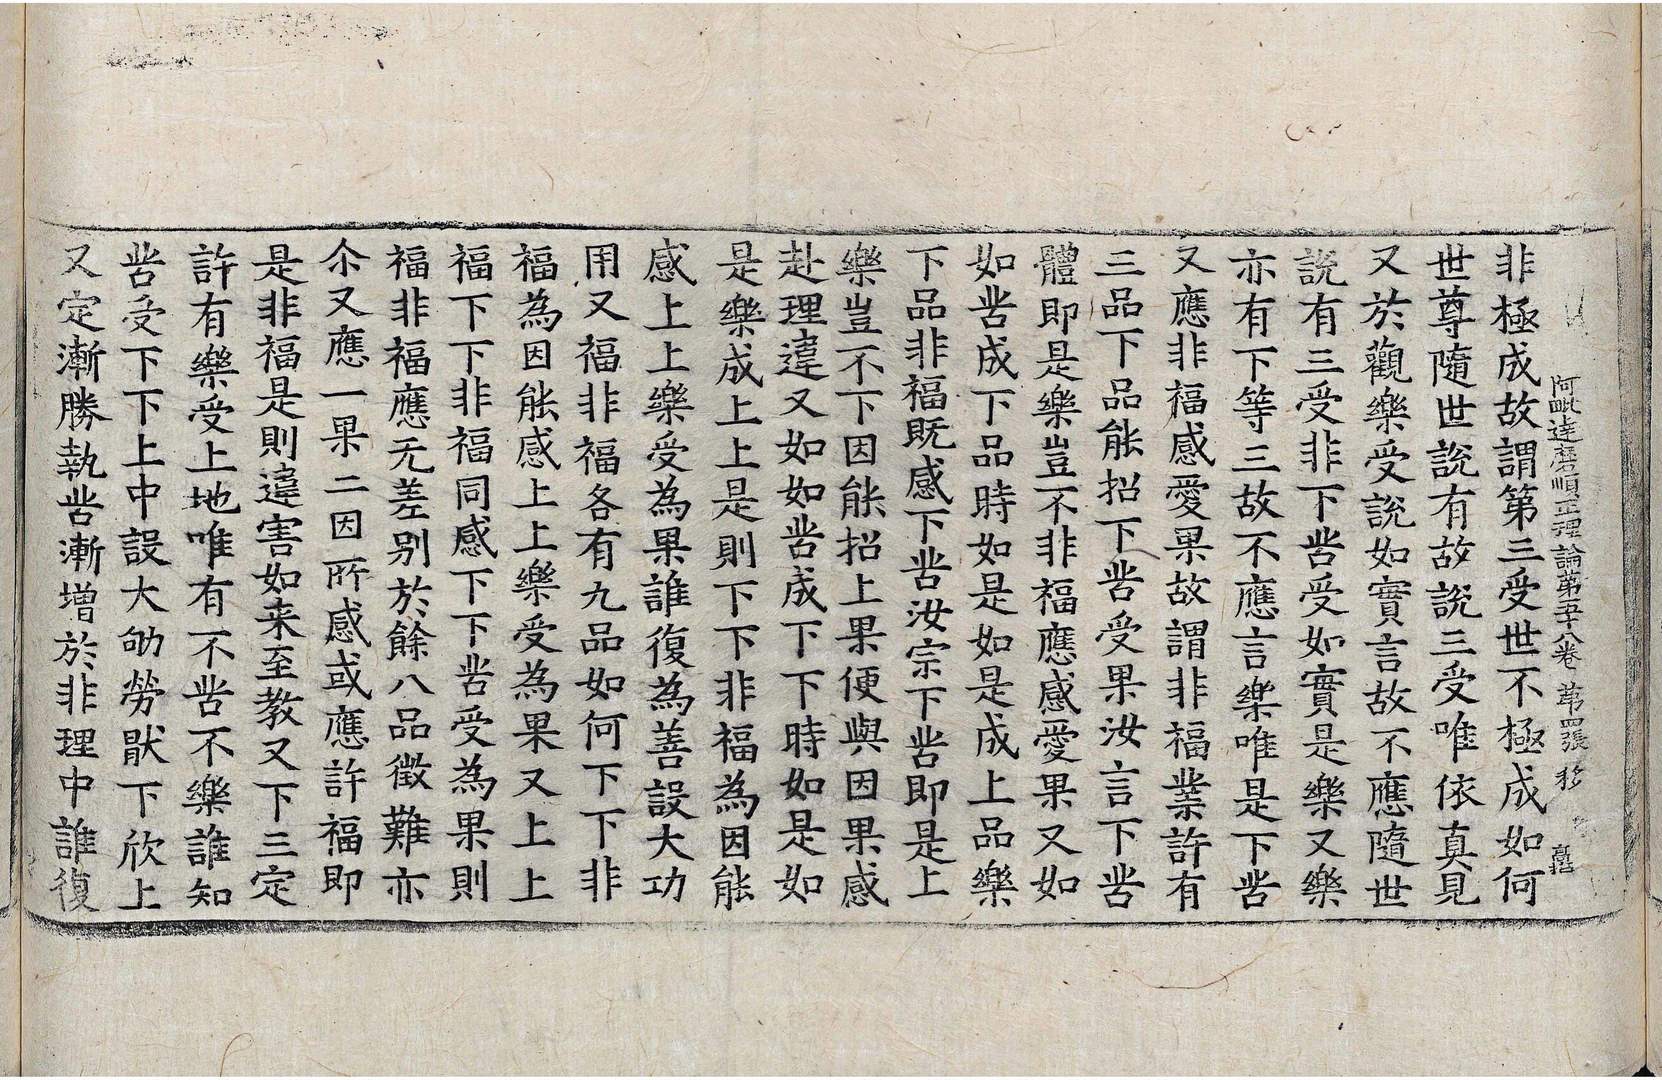 阿毗達磨順正理論第五十八卷 第四張 移
非極成故謂第三受世不極成如何
世尊隨世說有故說三受唯依真見
又於觀樂受說如實言故不應隨世
說有三受非下苦受如實是樂又樂
亦有下等三故不應言樂唯是下苦
又應非福感愛果故謂非福業許有
三品下品能招下苦受果汝言下苦
體即是樂豈不非福應感愛果又如
如苦成下品時如是如是成上品樂
下品非福既感下苦汝宗下苦即是上
樂豈不下因能招上果便與因果感
赴理違又如如苦成下下時如是如
是樂成上上是則下下非福為因能
感上上樂受為果誰復為善設大功
用又福非福各有九品如何下下非
福為因能感上上樂受為果又上上
福下下非福同感下下苦受為果則
福非福應无差別於餘八品徵難亦
尒又應一果二因所感或應許福即
是非福是則違害如来至教又下三定
許有樂受上地唯有不苦不樂誰知
苦受下下上中設大劬勞猒下欣上
又定漸勝執苦漸增於非理中誰復